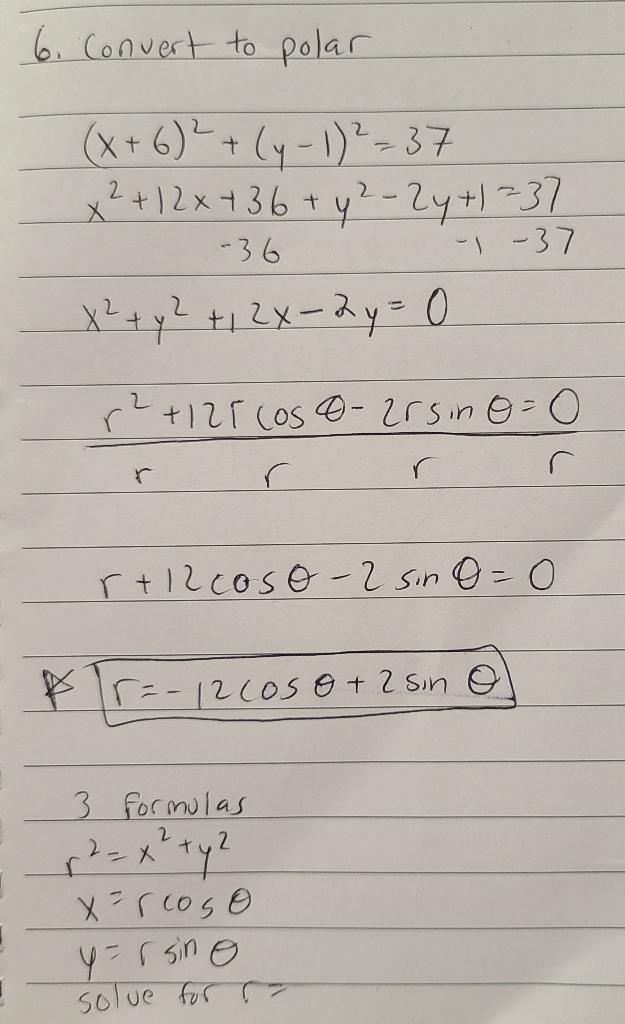 6. Convert to polar
(x+6)² + (y-1)² = 37
x² + 12x + 36 + y² - 2y + 1 = 37
-36 -1 -37
x² + y² + 12x - 2y = 0
r² + 12r cos θ - 2r sin θ = 0
r r r r
r + 12 cos θ - 2 sin θ = 0
☆ r = -12 cos θ + 2 sin θ
3 formulas
r² = x² + y²
x = r cos θ
y = r sin θ
solve for r =